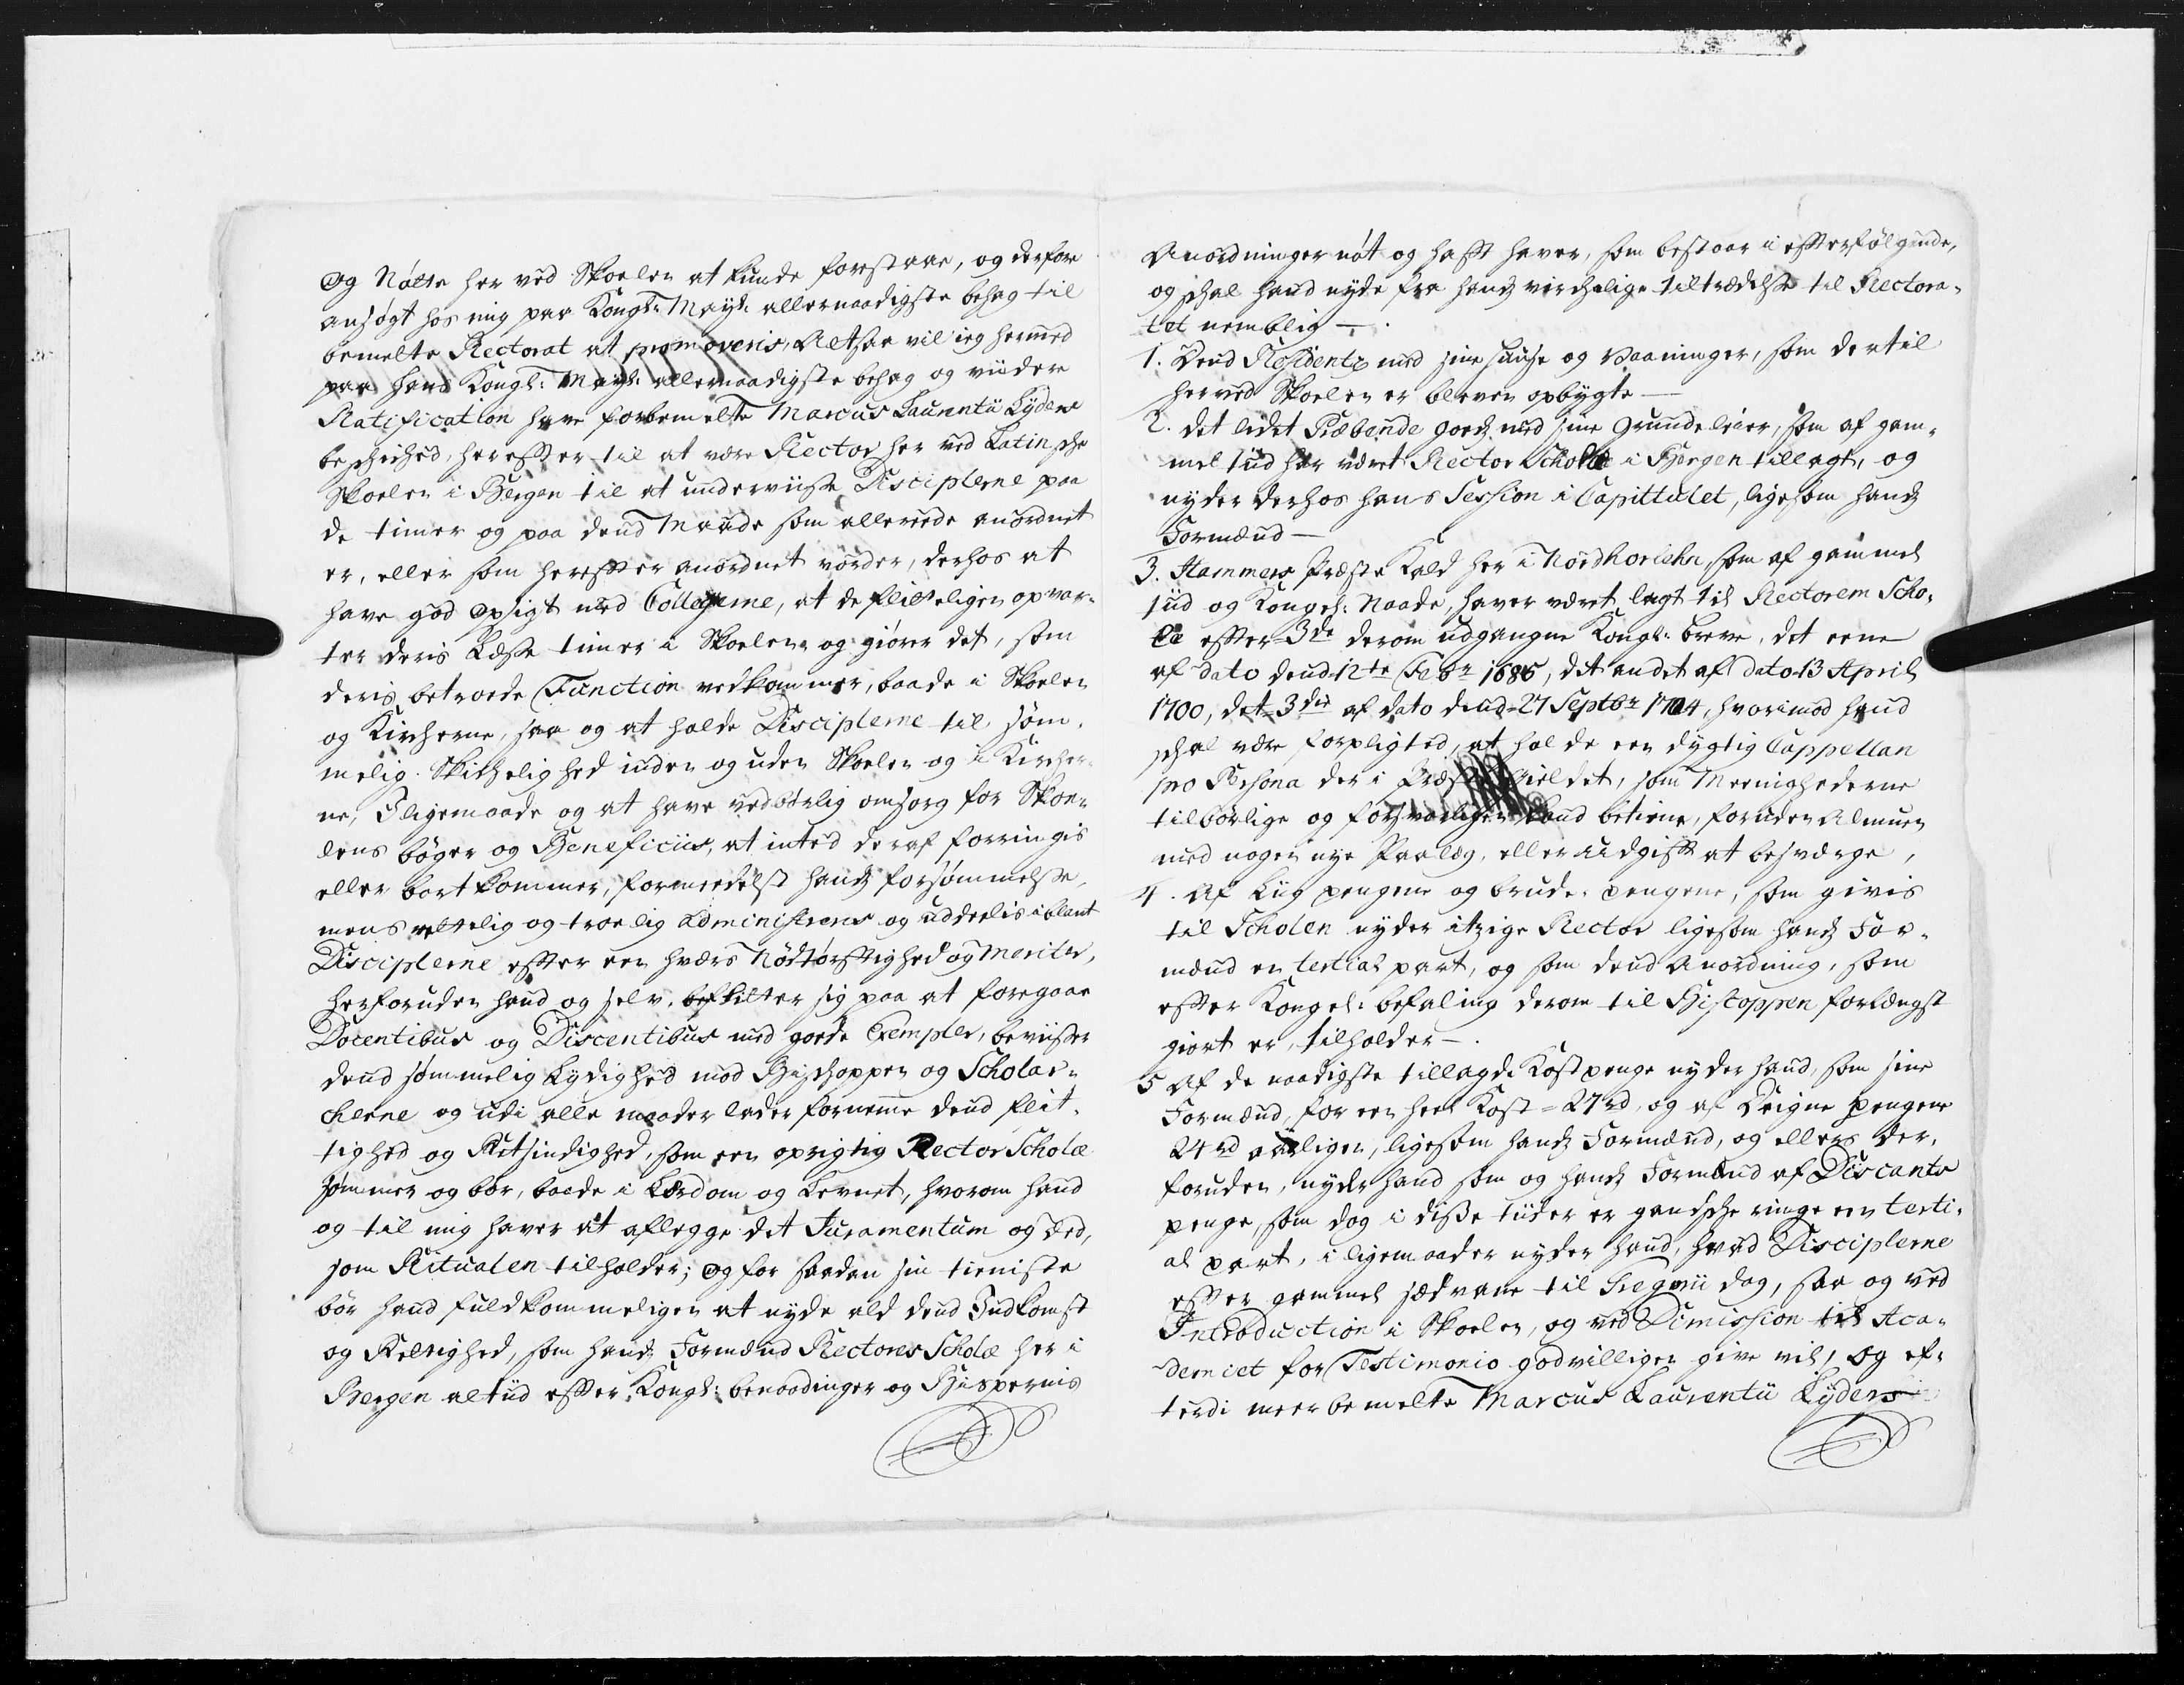 og Nøtte her ved Skoelen at kunde forestaae, og derfore
ansøgt hos mig paa Kongl: Mayt: allernaadigste behag til
bemelte Rectorat at promoveris, Altsaa vil ieg hermed
paa Hans Kongl: Mayt: allernaadigste behag og viidere
Ratification have forbemelte Marcus Laurentii Lyders
beschiched, herefter til at være Rector her ved Latin sche
Skoelen i Bergen til at underviisse Disciplerne paa
de timer og paa dend Maade som allerede anordnet
er, eller som herefter anordnet vorder, derhos at
have god opsigt med Collegerne, at de flitteligen opvar-
ter deris Læsse timer i Skoelen og giører det, som
deris betroede Function vedkommer, baade i Skoelen
og Kircherne, saa og at holde Disciplerne til søm-
melig Skichelighed inden og uden Skoelen og i Kircher-
ne, Iligemaade og at have vedbørlig omsorg for Skoe-
lens bøger og Beneficiis, at inted deraf forringis
eller bortkommer, formedelst hands forsømmelsse,
mens rettelig og troelig administreris og uddeelis iblant
Disciplerne efter een hvers Nødtørftighed og Meriter,
herforuden hand og selv, befliiter sig paa at foregaae
Docentibus og Discentibus med goede Exempler, beviisser
dend sømmelig Lydighed mod Bischoppen og Scholar-
cherne og udi alle maader lader fornemme dend flit-
tighed og Retsindighed, som een oprigtig Rector Scholæ
sømmer og bør, baade i Lærdom og Levnet, hvorom hand
og til mig haver at aflegge det Juramentum og Æed,
som Ritualen tilholder; og for saadan sin tieniste
bør hand fuldkommeligen at nyde ald dend Indkomst
og Rettighed, som hands Formænd Rectores Scholæ her i
Bergen altiid efter Kongl: benaadinger og Bispernis
Anordninger nøt og haft haver, som bestaar i efterfølgende,
og schal hand nyde fra hands virchelige tiltrædelse til Rectora-
tet nemblig —.
1. Dend Residentz med sine huuse og Vaaninger, som dertil
herved Skoelen er bleven opbygte —
2. Det lidet Præbende goeds med sine Grundeleier, som af gam-
mel tiid har været Rector Scholæ i Bergen tillagt, og
nyder derhos hans Session i Capittulet, ligesom hands
Formænd —
3. Hammers Præste Kald her i Nordhorlehn, som af gammel
tiid og Kongel: Naade, haver været lagt til Rectorem Scho-
læ efter 3de derom udgangne Kongl: breve, det eene
af dato dend 12te Febr 1686, det andet af dato 13 April
1700, det 3die af dato dend 27 Septbr 1704, hvorimod hand
schal være forpligted, at holde een dygtig Cappellan
pro Persona der i Præstegieldet, som Meenighederne
tilbørlige og forsvarligen kand betiene, foruden Almuen
med nogen nye Paalæg, eller udgift at besværge,
4. Af Liig pengene og brude- pengene, som givis
til Scholen nyder itzige Rector ligesom hands For-
mænd en tertial part, og som dend Anordning, som
efter Kongel: befaling derom til Biscoppen forlængst
giort er, tilholder —.
5 Af de naadigste tillagde Kostpenge nyder hand, som sine
Formænd, for een heel Kost = 27 rd, og af Deigne pengene
24 rd aarligen, ligesom hands Formænd, og ellers der-
foruden, nyder hand som og hands Formænd af Discants
penge, som dog i disse tiider er gandsche ringe een terti-
al part, i ligemaader nyder hand, hvad Disciplerne
efter gammel sædvane til Gregorii dag, saa og ved
Introduction i Skoelen, og ved Dimission til Aca-
demiet for Testimonio godvilligen give vil, og ef-
terdi meerbemelte Marcus Laurentii Lyders